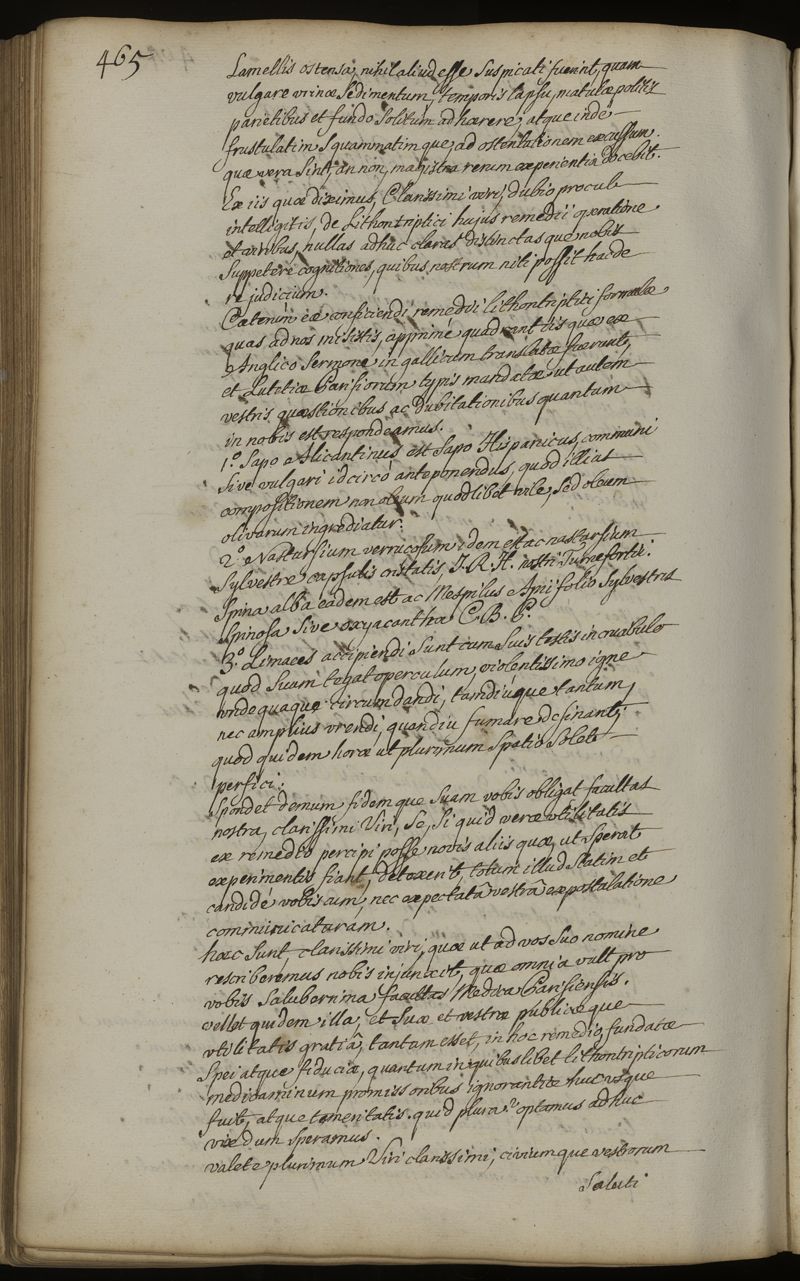 465
Lamellis ostensa, nihil aliud esse Suspicati fuerint, quam
vulgare urinæ Sedimentum, temporis lapsu, matulæ politis
parietibus et fundo Solitum adhærere, atque inde
frustulatim Squammatimque, ad ostentationem excussum.
quæ vera Sint, an non, magistra rerum experientia docebit.
Ex iis quæ diximus, Clarissimi viri, dubio procul
intelligitis, de Lithontriptici hujus remedii operatione
et viribus, nullas adhuc claras distinctasque nobis
Suppetere cognitiones, quibus nostrum niti possit hac de
re judicium.
Cæterum eæ conficiendi remedii lithontriptici formulæ
quas ad nos misistis, apprimé quadrant iis quæ ex
Anglico Sermone in gallicum translatæ fuerunt,
et Lutetiæ Parisiorum typis mandatæ, ut autem
vestris quæstionibus ac Dubitationibus quantum
in nobis est respondeamus.
1.º Sapo Alicantinus est Sapo Hispanicus, communi
Sive vulgari idcircó anteponendus, quod illius
compositionem non oleum quodlibet vile, Sed oleum
olivarum ingrediatur.
2.º Nasturtium verrucosum idem est ac nasturtium
Sylvestre capsulis cristatis, I. R. H. nostri Turnefortii.
Spina alba eadem est ac Mespilus Apii folio Sylvestris
Spinosa Sive oxyacantha C. B. P.
3.º Limaces accipiendi Sunt cum Suis testis in cruribulo
quod Suum tegat operculum, violentissimo igne
undequaque circumdandi, tamdiúque tantum,
nec amplius urendi, quandiu fumare desinant,
quod quidem horæ ut plurimum Spatio Solet
perfici.
Spondet demum fidemque Suam vobis obligat facultas
nostra, clarissimi Viri, Se, Si quid veræ utilitatis
ex remedio percipi posse novis aliis quæ, ut Sperat
experimentis fiant, detexerit, totum illud Statim et
candidé vobiscum, nec expectatâ vestrâ expostulatione
communicaturam.
hæc Sunt, clarissimi viri, quæ ut ad vos Suo nomine
rescriberemus nobis injunxit, quæ omnia vult pro
vobis Saluberrima facultas Medica Parisiensis.
vellet quidem illa, et Suæ et vestræ publicæque
utilitatis gratiâ, tantum esset, in hoc remedio, fundatæ
Spei atque fiduciæ, quantum in quibuslibet lithontripticorum
medicaminum promissoribus ignorantiæ huc usque
fuit, atque temeritatis. quid plura? optamus adhuc
vix dum Speramus.
valete plurimum Viri clarissimi, civiumque vestrorum
Saluti